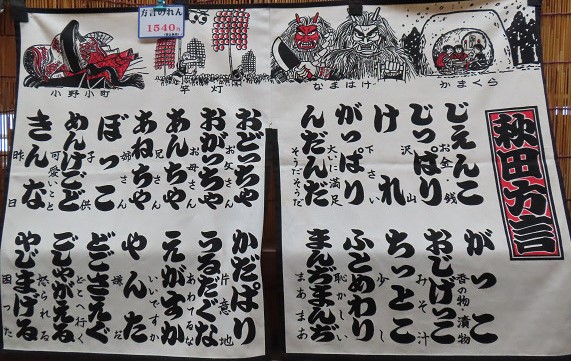 方言のれん
1540円
小野小町
竿灯
なまはげ
かまくら
秋田方言
じぇんこ
お金 銭
じっぱり
沢山
け
れ
下さい
がっぱり
大いに満足
んだんだ
そうだそうだ
がっこ
香の物 漬物
おじげっこ
みそ汁
ちっとこ
少し
ふとめわり
恥かしい
まんぢまんぢ
まあまあ
おどっちゃ
お父さん
おがっちゃ
お母さん
あんちゃ
兄さん
あねちゃ
姉さん
ぼっこ
子供
めんけごど
可愛いこと
きんな
昨日
かだぱり
片意地
うるだぐな
あわてるな
えがすか
いいですか
やんた
嫌だ
どごさえぐ
どこへ行く
ごしゃがえる
怒られる
やじまげる
困った